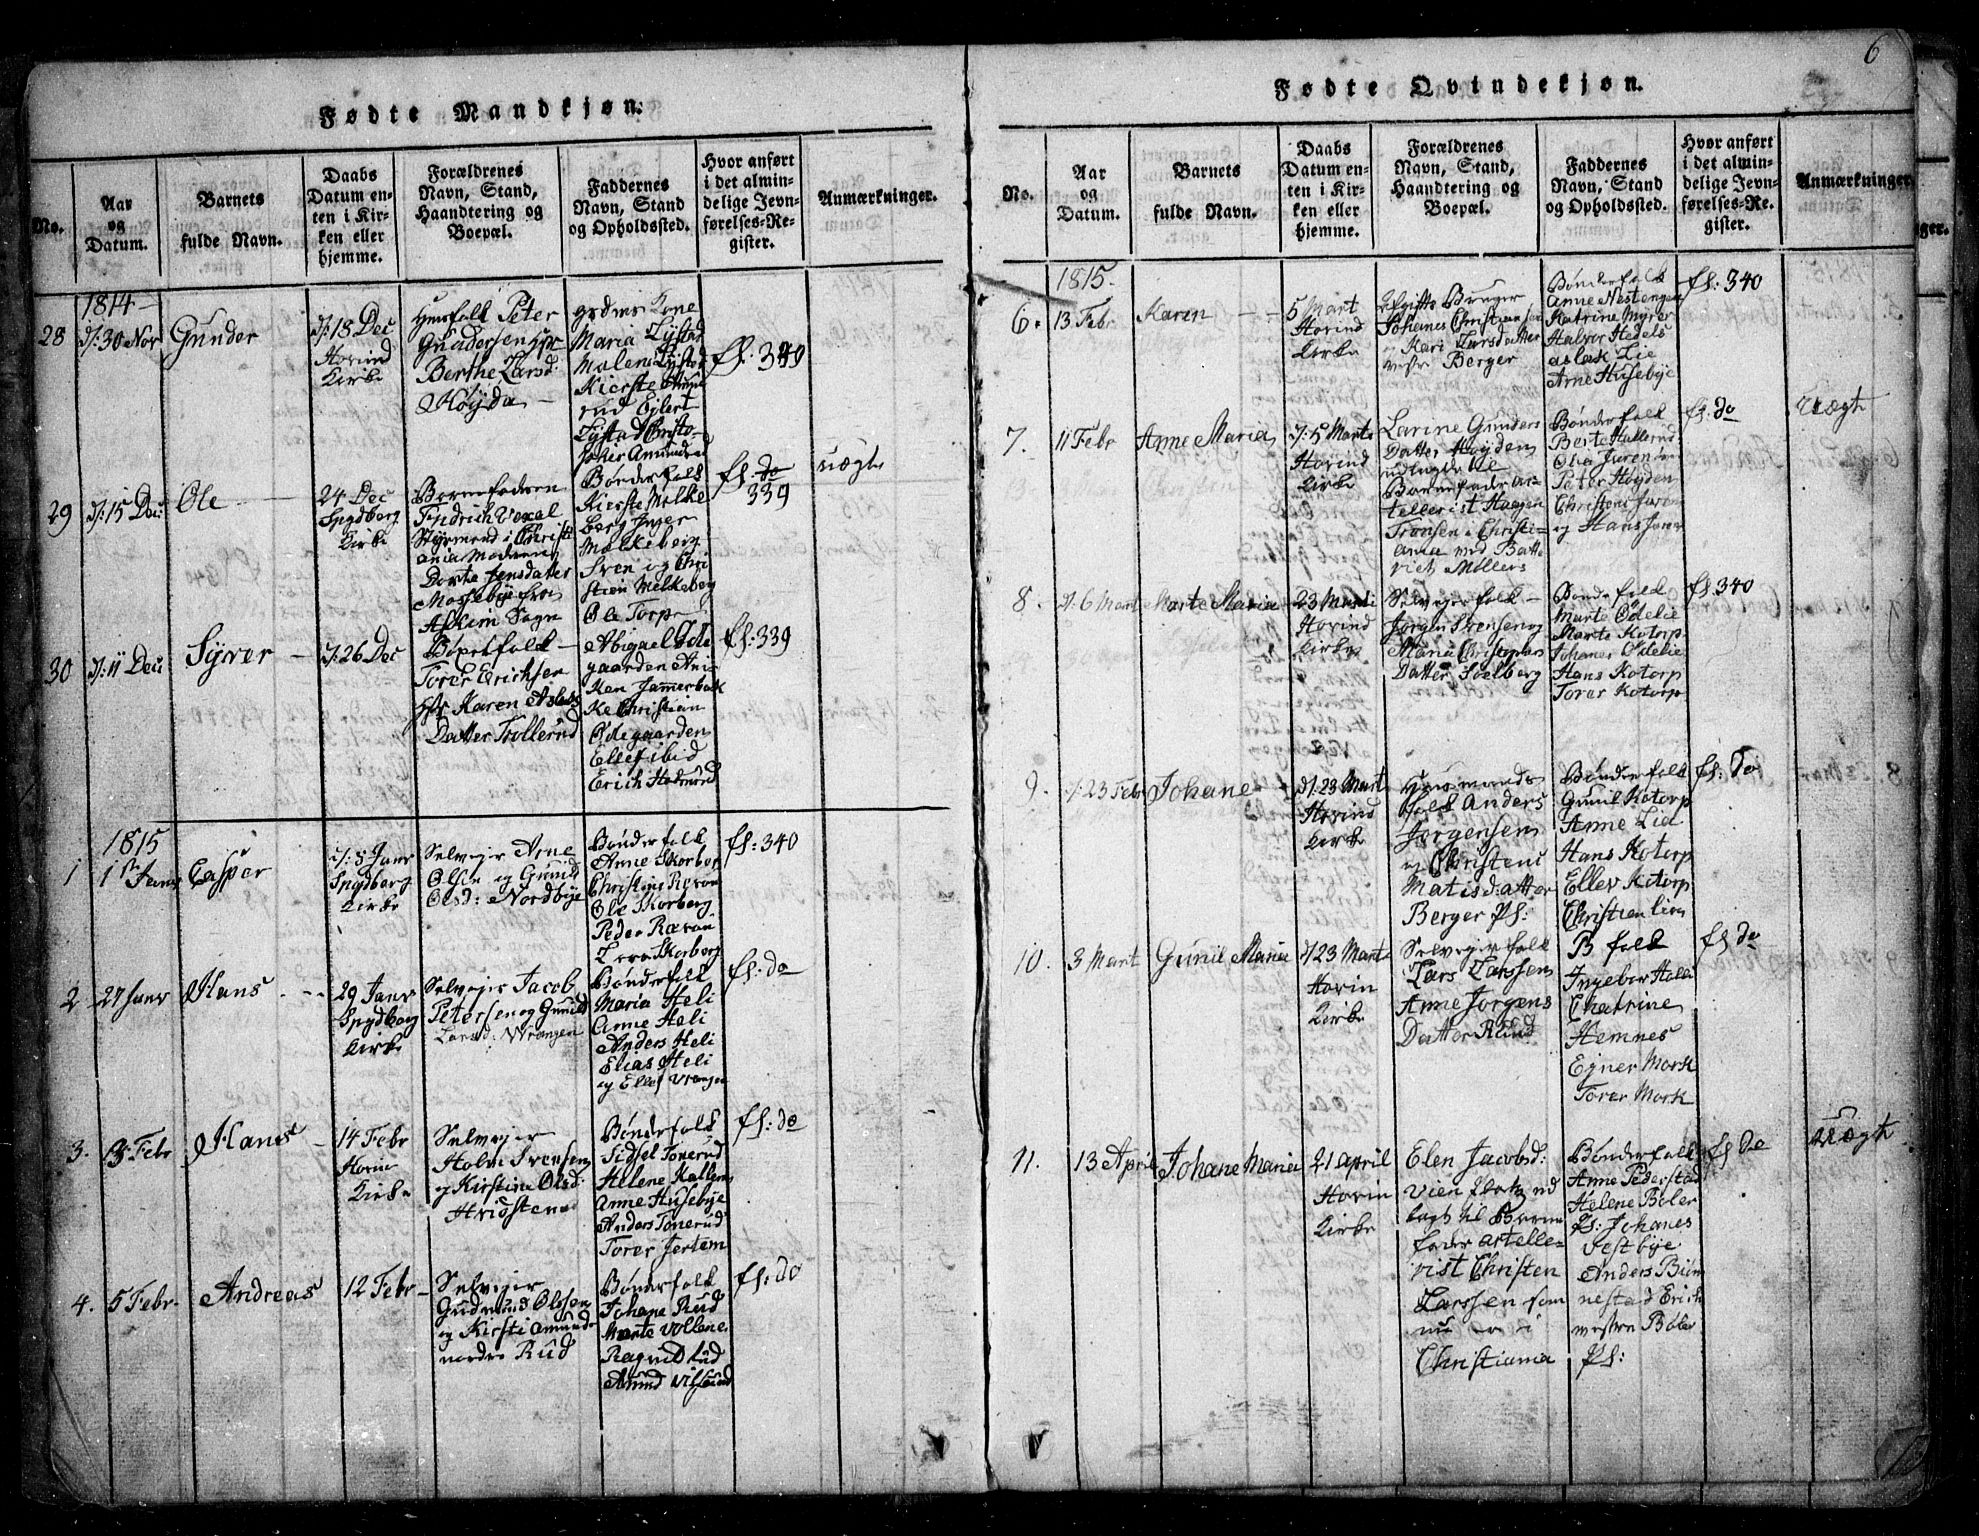 6
Fødte Mandkjøn.
No.
Aar
og
Datum.
Barnets
fulde Navn.
Daabs
Datum en-
ten i Kir-
ken eller
hjemme.
Forældrenes
Navn, Stand,
Haandtering og
Boepæl.
Faddernes
Navn, Stand
og Opholdssted.
Hvor anført
i det almin-
delige Jevn-
førelses-Re-
gister.
Anmærkninger.
1814
28
d: 30 Nov
Gunder
d: 18 Dec
Hovind
Kirke
Huusfolk Peter
Gundersen
Berthe Larsd:
Høyda
Kone
Maria Lystad
Malene Lystad
Kierste
rud Ejlert
Lystad Christo-
pher Amundrud
fl: 340
29
d: 15 Dec
Ole
24 Dec
Spydberg
Kirke
Barnefaderen
Fridrich
Styrmand i Christi
ania Moderen
Dorte Jensdatter
Mossebye fra
Askem Sogn
Bønderfolk
Kierste Melke
berg Inger
Melkeberg
Sven og Chri
stien Melkeberg
Ole Torp
fl: do
339
uægte
30
d: 11 Dec
Syver
d: 26 Dec
Torer Erichsen
Karen Aslags
Datter Trollerud
Abigael Øde
gaarden Ani
ken Jammerbak
ke Christian
Ødegaarden
Ellef ibid
Erich
fl: 339
1815
1
1ste Janr
Casper
d: 8 Janr
Spydberg
Kirke
Selvejer Arne
Olsen og Gunild
Olsd: Nordbye
Bønderfolk
Anne Skorberg
Christine
Ole Skorberg
Peder
Skorberg
fl: 340
2
27 Janr
Hans
29 Janr
Spydberg
Kirke
Selvejer Jacob
Petersen og Gunild
Larsd: Wrangen
Bønderfolk
Maria Heli
Anne Heli
Anders Heli
Elias Heli
og Ellef Vrangen
fl: do
3.
Febr
Hans
14 Febr
Hovin
Kirke
Selvejer
Holm Svensen
og Kirstine Olsd:
Bønderfolk
Sidsel Tonerud
Helene Kallem
Anne Husebye
Anders Tonerud
Torer Jertem
fl: do
4.
5 Febr.
Andreas
12 Febr
Selvejer
Gudmund Olssen
og Kirsti Amunds
nordre Rud
Bønderfolk
Johane Rud
Marte Vollene
Ragnild Rud
Amund
fl: do
Fødte Qvindekjøn.
No.
Aar
og
Datum.
Barnets
fulde Navn.
Daabs
Datum en-
ten i Kir-
ken eller
hjemme.
Forældrenes
Navn, Stand,
Haandtering og
Boepæl.
Faddernes
Navn, Stand
og Opholdssted.
Hvor anført
i det almin-
delige Jevn-
førelses-Re-
gister.
Anmærkninger.
1815.
6.
13 Febr
Karen
5 Mart
Hovind
Kirke
Bruger
Johanes Christiansen
Kari Larsdatter
vestre Berger
Bønderfolk
Anne Nestengen
Katrine Myrer
Halvor Hedels
aslak Lie
Arne Husebye
fl: 340
7.
11 Febr
Anne Maria
d: 5 Marts
Hovind
Kirke
Larine Gunders
Datter Høyden
udlagde til
Barnefader Ar-
tellerist Haagen
Tronsen i Christi-
ania ved Batte
riet Møllers
Bønderfolk
Berte Hallerud
Peter Høyden
Christense
og Hans
fl: do
uægte
8.
d: 6 Mart
Marte Maria
23 Marti
Hovind
Kirke
Selvejerfolk
Jørgen Svensen og
Maria Christophers
Datter Soelberg
Bønderfolk
Marte Ødelie
Marte Kotorp
Johanes Ødelie
Hans Kotorp
Torer Kotorp
fl: 340
9.
d: 23 Febr
Johane
d: 23 Mart
Hovind
Kirke
Huusmands
folk Anders
Jørgensen
og Christene
Matisdatter
Berger Pl:
Bønderfolk
Gunil Kotorp
Anne Lie
Hans Kotorp
Ellev Kotorp
Christen Lien
fl: do
10.
3 Mart
Gunil Maria
d 23 Marts
Hovin
Kirke
Selvejerfolk
Lars Larssen
Anne Jørgens
Datter Rud
B folk
Ingebor Holm
Chatrine
Hemnes
Ejner Mork
Torer Mork
fl do
11.
13 April
Johane Maria
21 April
Hovin
Kirke
Elen Jacobsd:
ud
lagt til Barne
fader artelle-
rist Christen
Larssen som
nu er i
Christiania
Bønderfolk
Anne Pederstad
Helene Bøler
Pl: Johanes
Festbye
Anders
nestad Erich
westre Bøler
Pl:
fl do
uægte